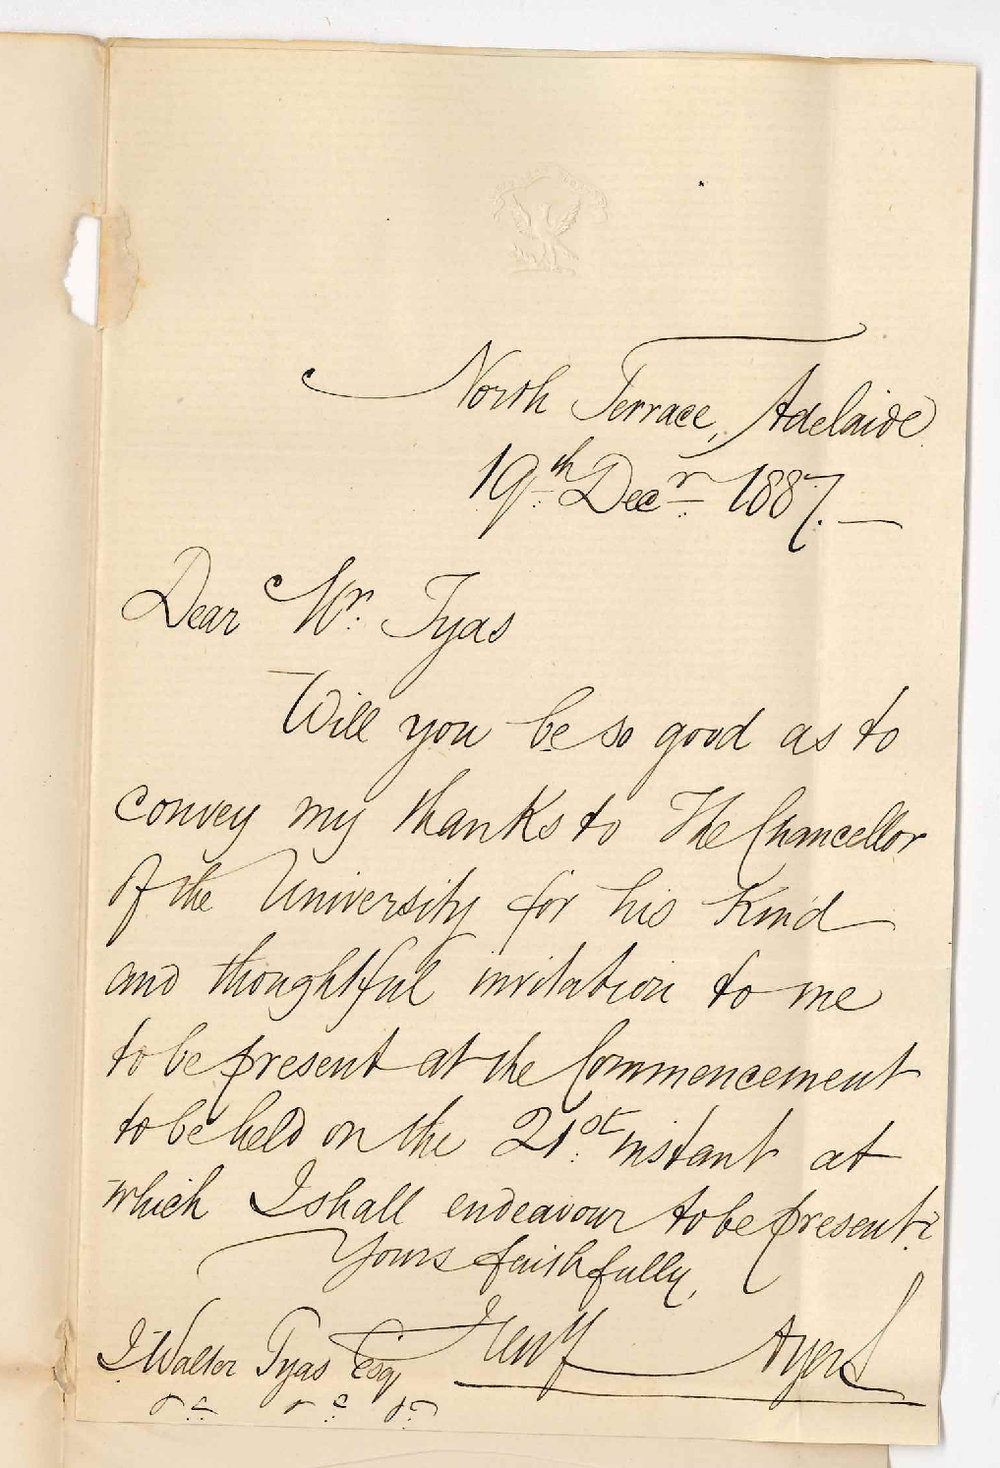 North Terrace, Adelaide
19th Decr 1887.
Dear Mr. Tyas
Will you be so good as to
convey my thanks to The Chancellor
of the University for his kind
and thoughtful invitation to me
to be present at the Commencement
to be held on the 21st instant at
which I shall endeavour to be present.
Yours faithfully,
Henry Ayers
J. Walter Tyas Esq
&c &c &c